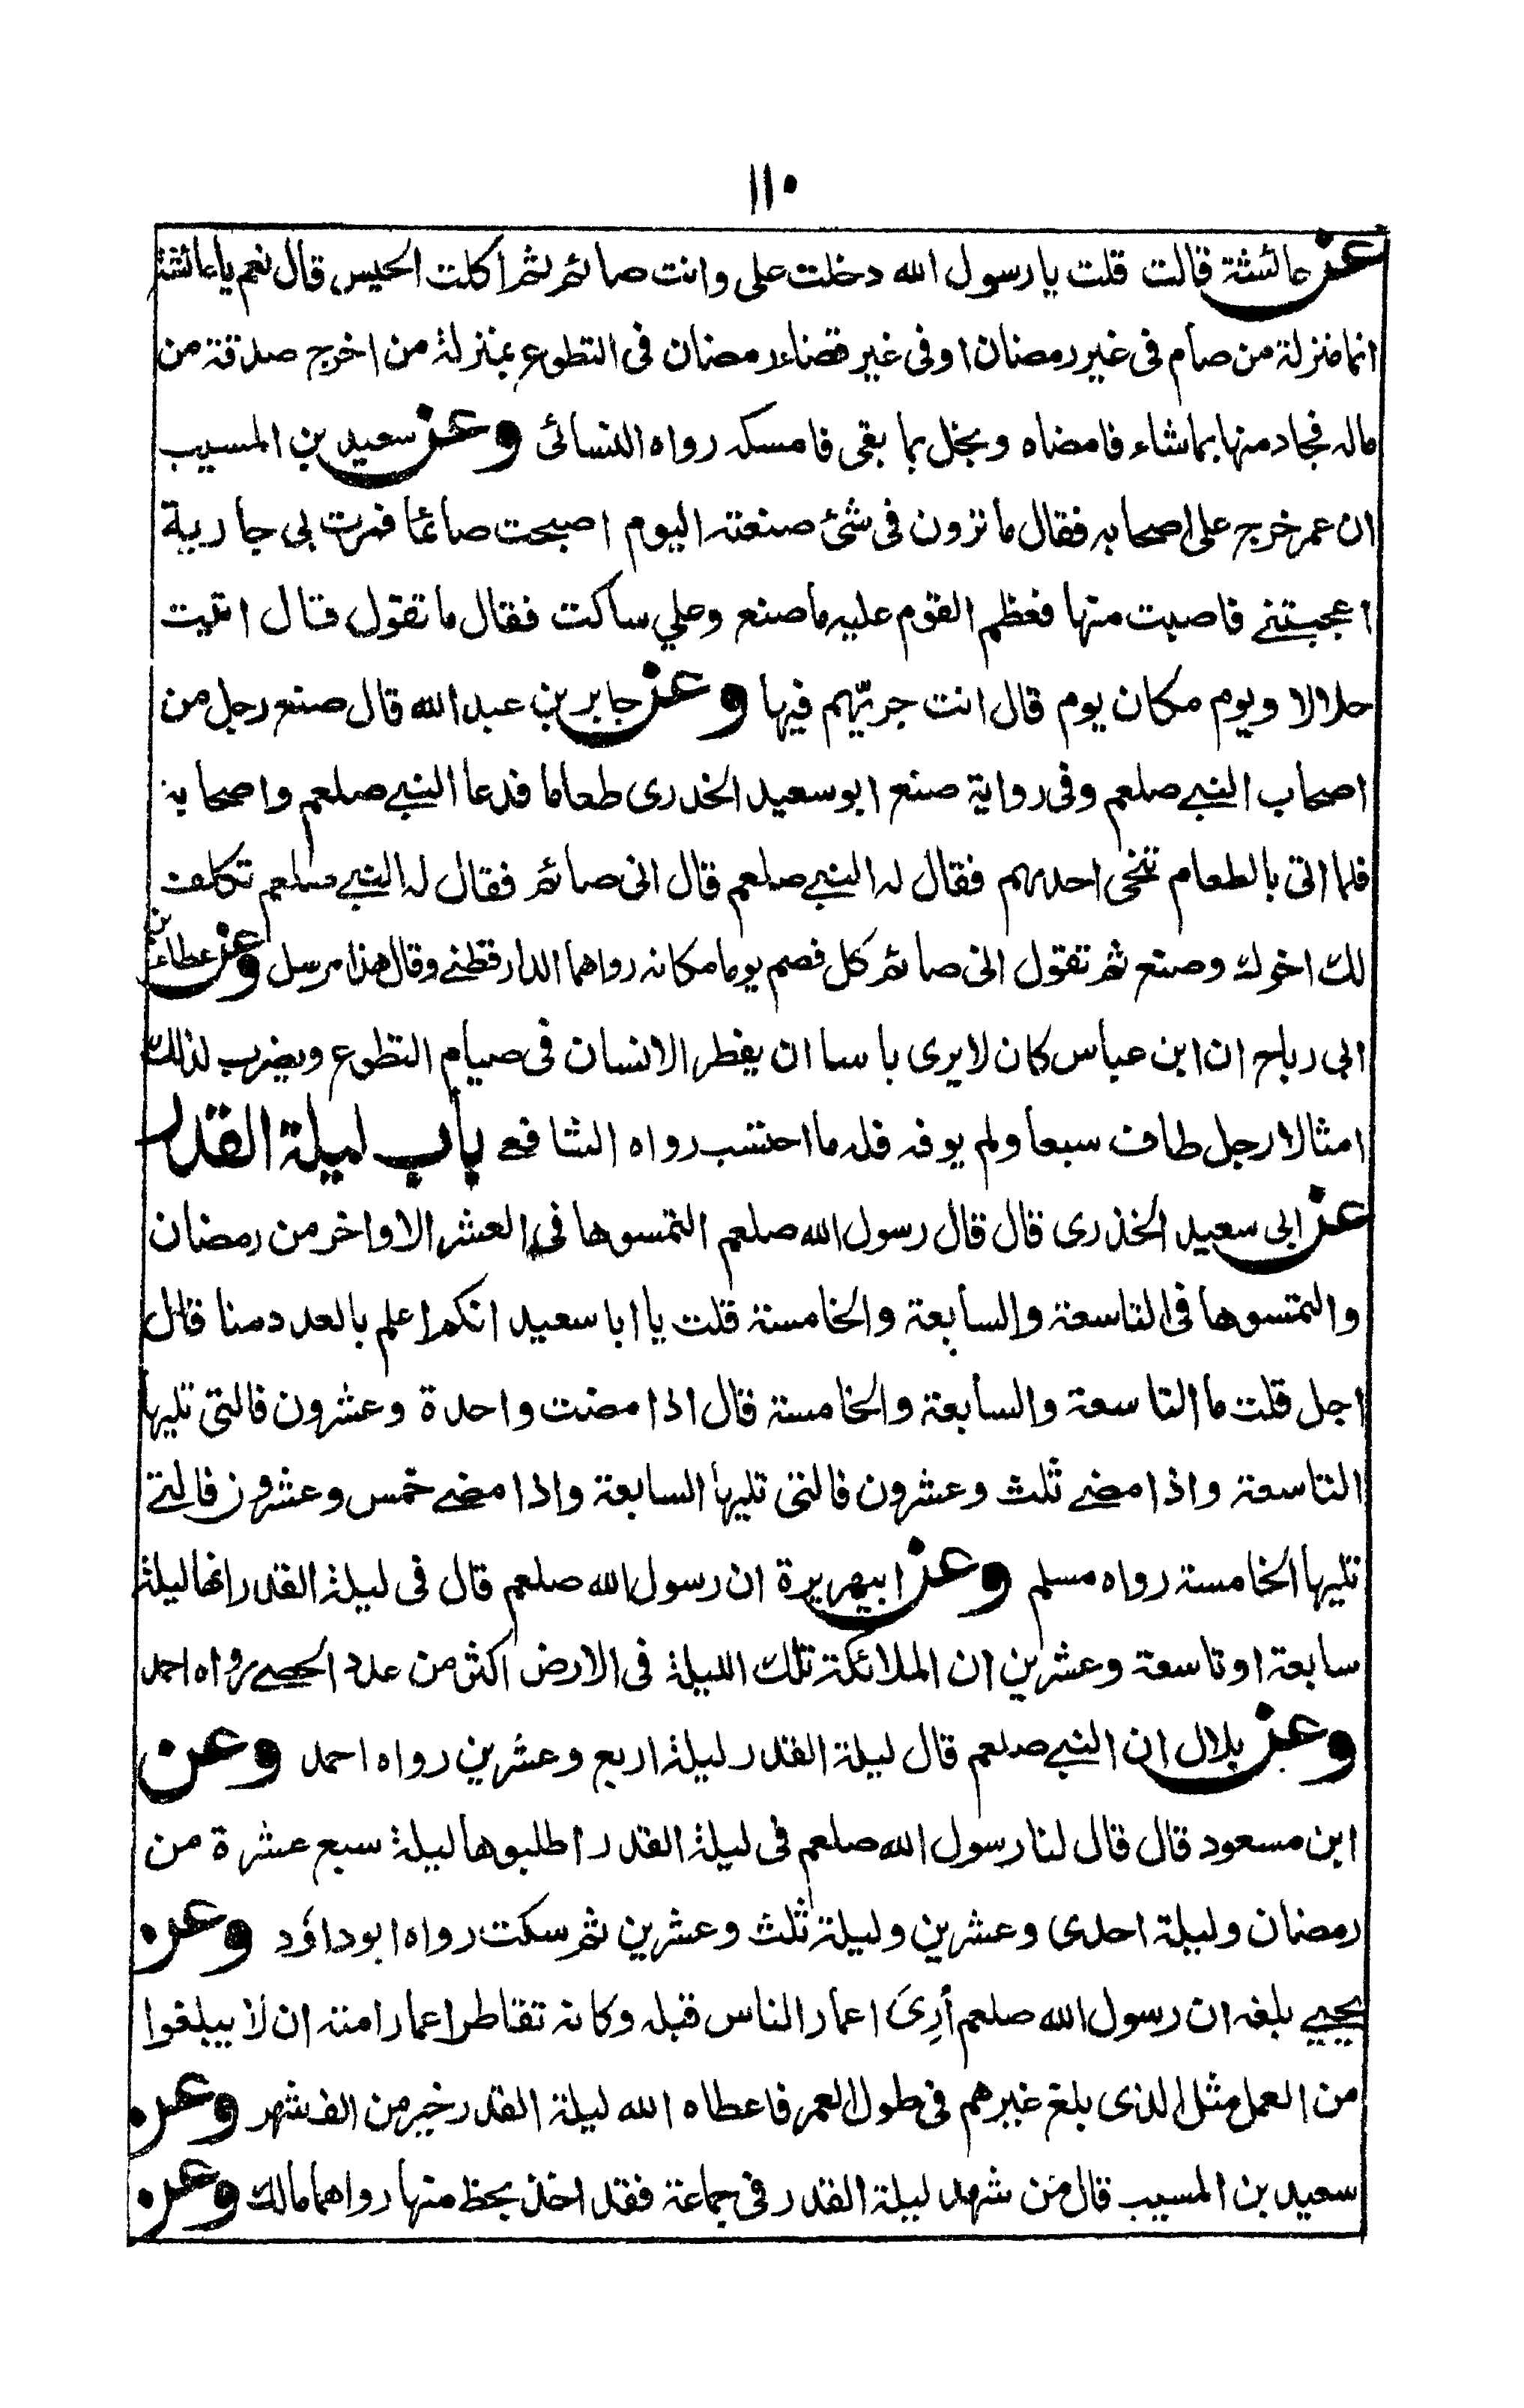 ١١٠
عن عائشة قالت قلت يا رسول الله دخلت علي وانت صائم ثم أكلت الحيس قال نعم يا عائشة
انما منزلة من صام في غير رمضان او في غير قضاء رمضان في التطوع بمنزلة من اخرج صدقة من
ماله فجاد منها بما شاء فامضاه وبخل بما بقى فامسكه رواه النسائى وعن سعيد بن المسيب
ان عمر خرج على اصحابه فقال ما ترون فى شئ صنعته اليوم اصبحت صائما فمرت بى جارية
اعجبتني فاصبت منها فعظم القوم عليه ما صنع وعلي ساكت فقال ما تقول قال اتيت
حلالا ويوم مكان يوم قال انت جريّهم فيها وعن جابر بن عبد الله قال صنع رجل من
اصحاب النبي صلعم وفى رواية صنع ابو سعيد الخدرى طعاما فدعا النبي صلعم واصحابه
فلما اتى بالطعام تنحى احدهم فقال له النبي صلعم قال انى صائم فقال له النبي صلعم تكلف
لك اخوك وصنع ثم تقول انى صائم كل فصم يوما مكانه رواهما الدارقطني وقال هذا مرسل وعن عطاء بن
ابى رباح ان ابن عباس كان لا يرى باسا ان يفطر الانسان فى صيام التطوع ويضرب لذلك
امثالا رجل طاف سبعا ولم يوفه فله ما احتسب رواه الشافعي باب ليلة القدر
عن ابى سعيد الخذرى قال قال رسول الله صلعم التمسوها في العشر الاواخر من رمضان
والتمسوها فى التاسعة والسابعة والخامسة قلت يا ابا سعيد انكم اعلم بالعدد منا قال
اجل قلت ما التاسعة والسابعة والخامسة قال اذا مضت واحدة وعشرون فالتى تليها
التاسعة واذا مضي ثلث وعشرون فالتى تليها السابعة واذا مضي خمس وعشرون فالتي
تليها الخامسة رواه مسلم وعن ابيهريرة ان رسول الله صلعم قال فى ليلة القدر انها ليلة
سابعة او تاسعة وعشرين ان الملائكة تلك الليلة فى الارض اكثر من عدد الحصي رواه احمد
وعن بلال ان النبي صلعم قال ليلة القدر ليلة اربع وعشرين رواه احمد وعن
ابن مسعود قال قال لنا رسول الله صلعم فى ليلة القدر اطلبوها ليلة سبع عشرة من
رمضان وليلة احدى وعشرين وليلة ثلث وعشرين ثم سكت رواه ابو داؤد وعن
يحيي بلغه ان رسول الله صلعم أرِىَ اعمار الناس قبله وكانه تقاطر اعمار امته ان لا يبلغوا
من العمل مثل الذى بلغ غيرهم فى طول العمر فاعطاه الله ليلة القدر خير من الف شهر وعن
سعيد بن المسيب قال من شهد ليلة القدر فى جماعة فقد اخذ بحظ منها رواهما مالك وعن